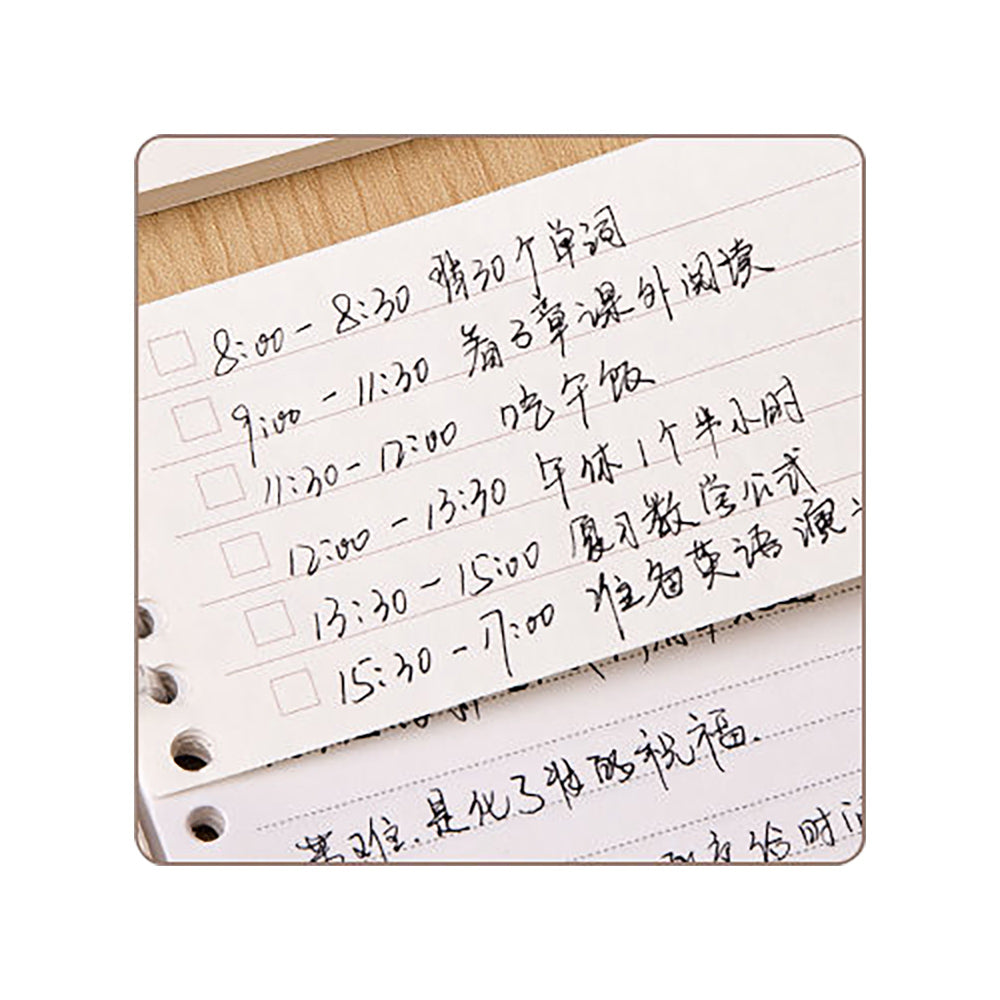 8:00-8:30 背30个单词
9:00-11:30 看3章课外阅读
11:30-12:00 吃午饭
12:00-13:30 午休1个半小时
13:30-15:00 复习数学公式
15:30-17:00 准备英语演
难.是化了妆的祝福.
给时间